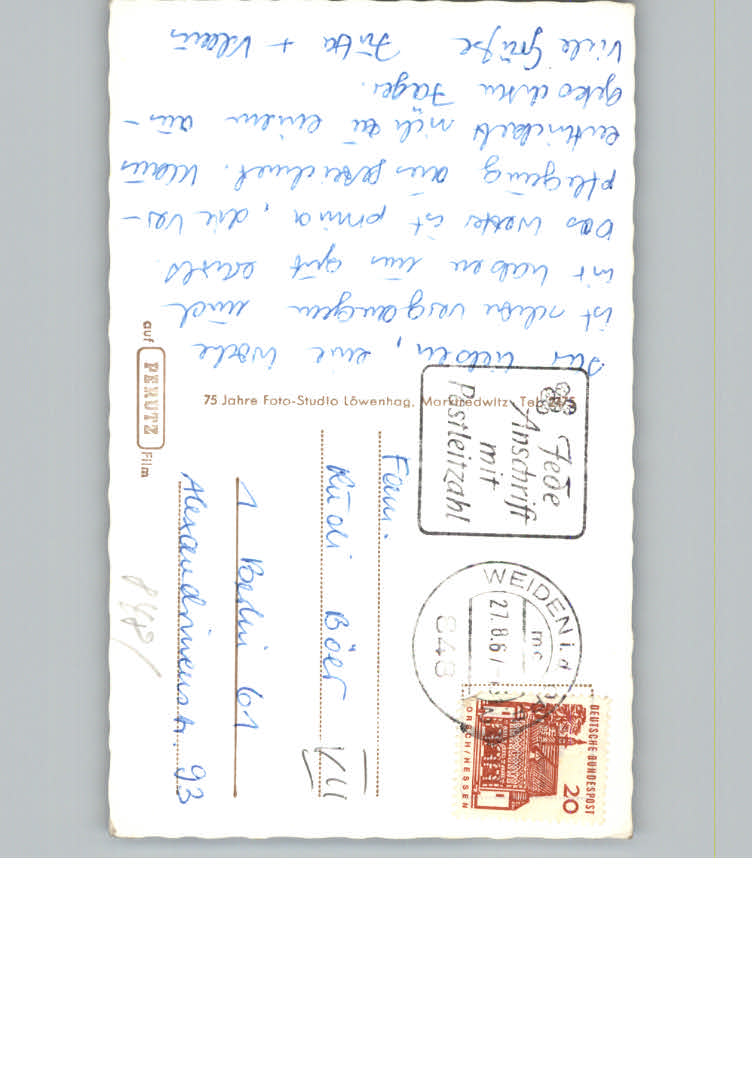 Ihr Lieben, eine Woche
ist schon vergangen und
wir haben uns gut erholt.
Das Wetter ist prima, die Ver-
pflegung ausgezeichnet. Klaus
entwickelt sich zu einem aus-
gekochten Jäger.
Viele Grüße Jutta + Klaus
75 Jahre Foto-Studio Löwenhag, Marktredwitz, Tel. 2475
auf PERUTZ Film
Jede
Anschrift
mit
Postleitzahl
WEIDEN i. d.
27.8.67
848
DEUTSCHE BUNDESPOST
20
LORSCH/HESSEN
Fam.
Rudi Böer
VIII
1 Berlin 61
Alexandrinenstr. 93